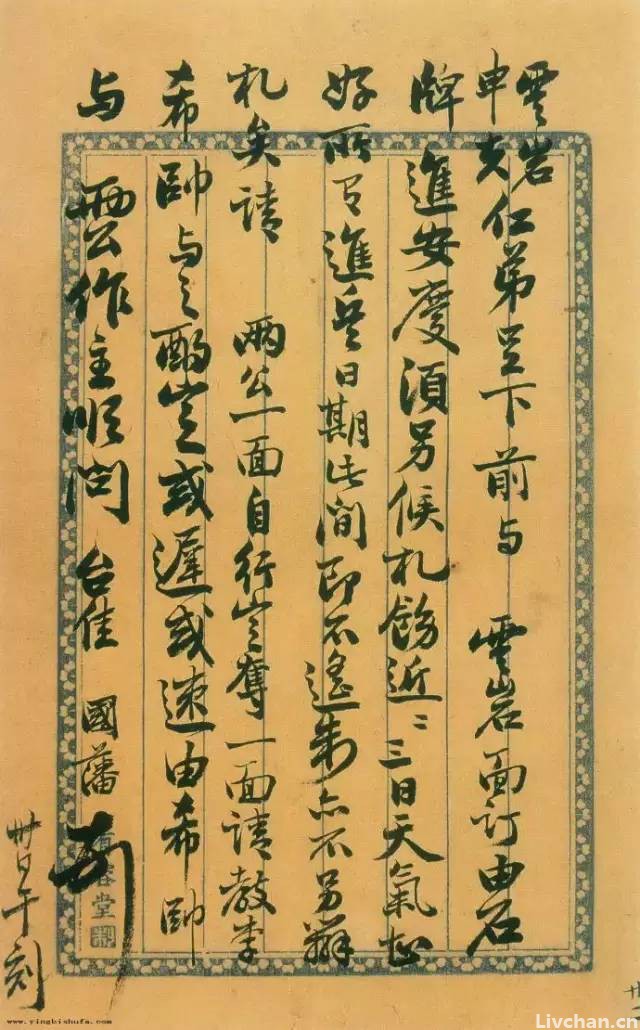 雲岩
申夫仁弟足下前与 雲岩面订由石
牌進安慶須另候札飭近二三日天氣甚
好所有進兵日期此间即不遙制亦不另辦
札矣請 兩公一面自行定奪一面請教李
希帥与之酌定或遲或速由希帥
与 兩公作主順問 台佳 國藩
卅日午刻
堂
www.yingbishufa.com
Livchan.cn